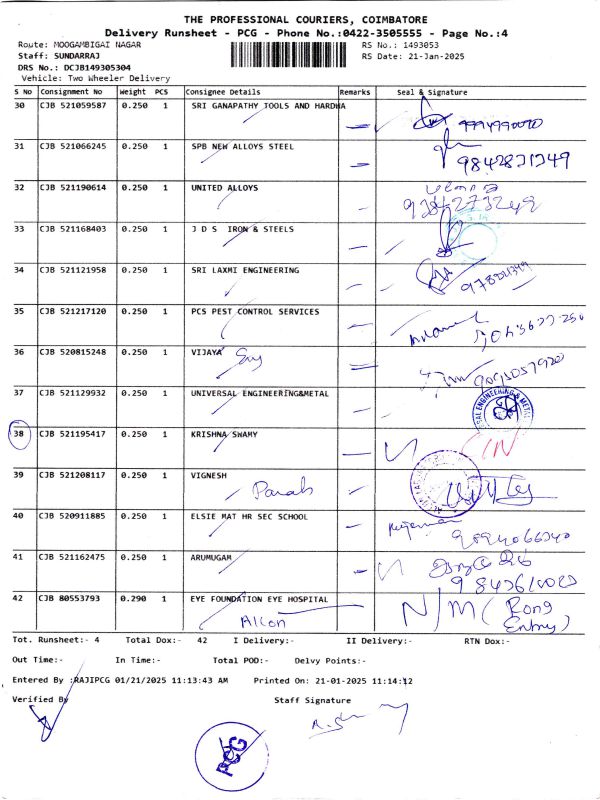 THE PROFESSIONAL COURIERS, COIMBATORE
Delivery Runsheet - PCG - Phone No.:0422-3505555 - Page No.:4
Route: MOOGAMBIGAI NAGAR RS No.: 1493053
Staff: SUNDARRAJ RS Date: 21-Jan-2025
DRS No.: DCJB149305304
Vehicle: Two Wheeler Delivery
S No Consignment No Weight PCS Consignee Details Remarks Seal & Signature
30 CJB 521059587 0.250 1 SRI GANAPATHY TOOLS AND HARDWA
31 CJB 521066245 0.250 1 SPB NEW ALLOYS STEEL
9842831349
32 CJB 521190614 0.250 1 UNITED ALLOYS
33 CJB 521168403 0.250 1 J D S IRON & STEELS
34 CJB 521121958 0.250 1 SRI LAXMI ENGINEERING
35 CJB 521217120 0.250 1 PCS PEST CONTROL SERVICES
36 CJB 520815248 0.250 1 VIJAYA
37 CJB 521129932 0.250 1 UNIVERSAL ENGINEERING&METAL
38 CJB 521195417 0.250 1 KRISHNA SWAMY
39 CJB 521208117 0.250 1 VIGNESH
40 CJB 520911885 0.250 1 ELSIE MAT HR SEC SCHOOL
41 CJB 521162475 0.250 1 ARUMUGAM
42 CJB 80553793 0.290 1 EYE FOUNDATION EYE HOSPITAL
Alcon N/M (Rong
Entry)
Tot. Runsheet:- 4 Total Dox:- 42 I Delivery:- II Delivery:- RTN Dox:-
Out Time:- In Time:- Total POD:- Delvy Points:-
Entered By :RAJIPCG 01/21/2025 11:13:43 AM Printed On: 21-01-2025 11:14:12
Verified By Staff Signature
PCG